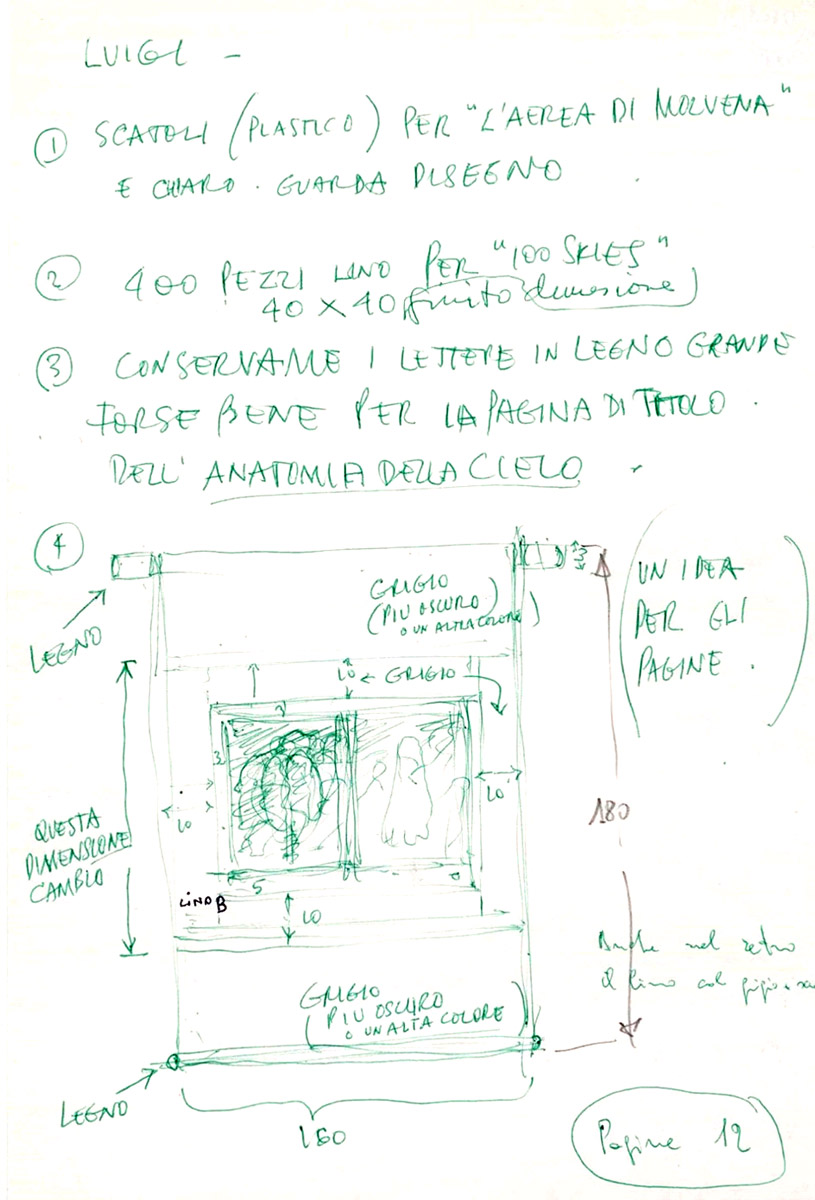 LUIGI -
① SCATOLI (PLASTICO) PER "L'AEREA DI MOLVENA"
E CHIARO. GUARDA DISEGNO
② 400 PEZZI LINO PER "100 SKIES"
40 X 40 finito dimesione
③ CONSERVAME I LETTERE IN LEGNO GRANDE
FORSE BENE PER LA PAGINA DI TITOLO.
DELL' ANATOMIA DELLA CIELO
④
3
UN IDEA
PER GLI
PAGINE.
GRIGIO
(PIU OSCURO)
O UN ALTRA COLORE)
LEGNO
10 ← GRIGIO
3
10
10
180
QUESTA
DIMENSIONE
CAMBIO
5
LINO B
10
Anche nel retro
il lino col grigio
GRIGIO
(PIU OSCURO
O UN ALTA COLORE)
LEGNO
160
Pagine 12